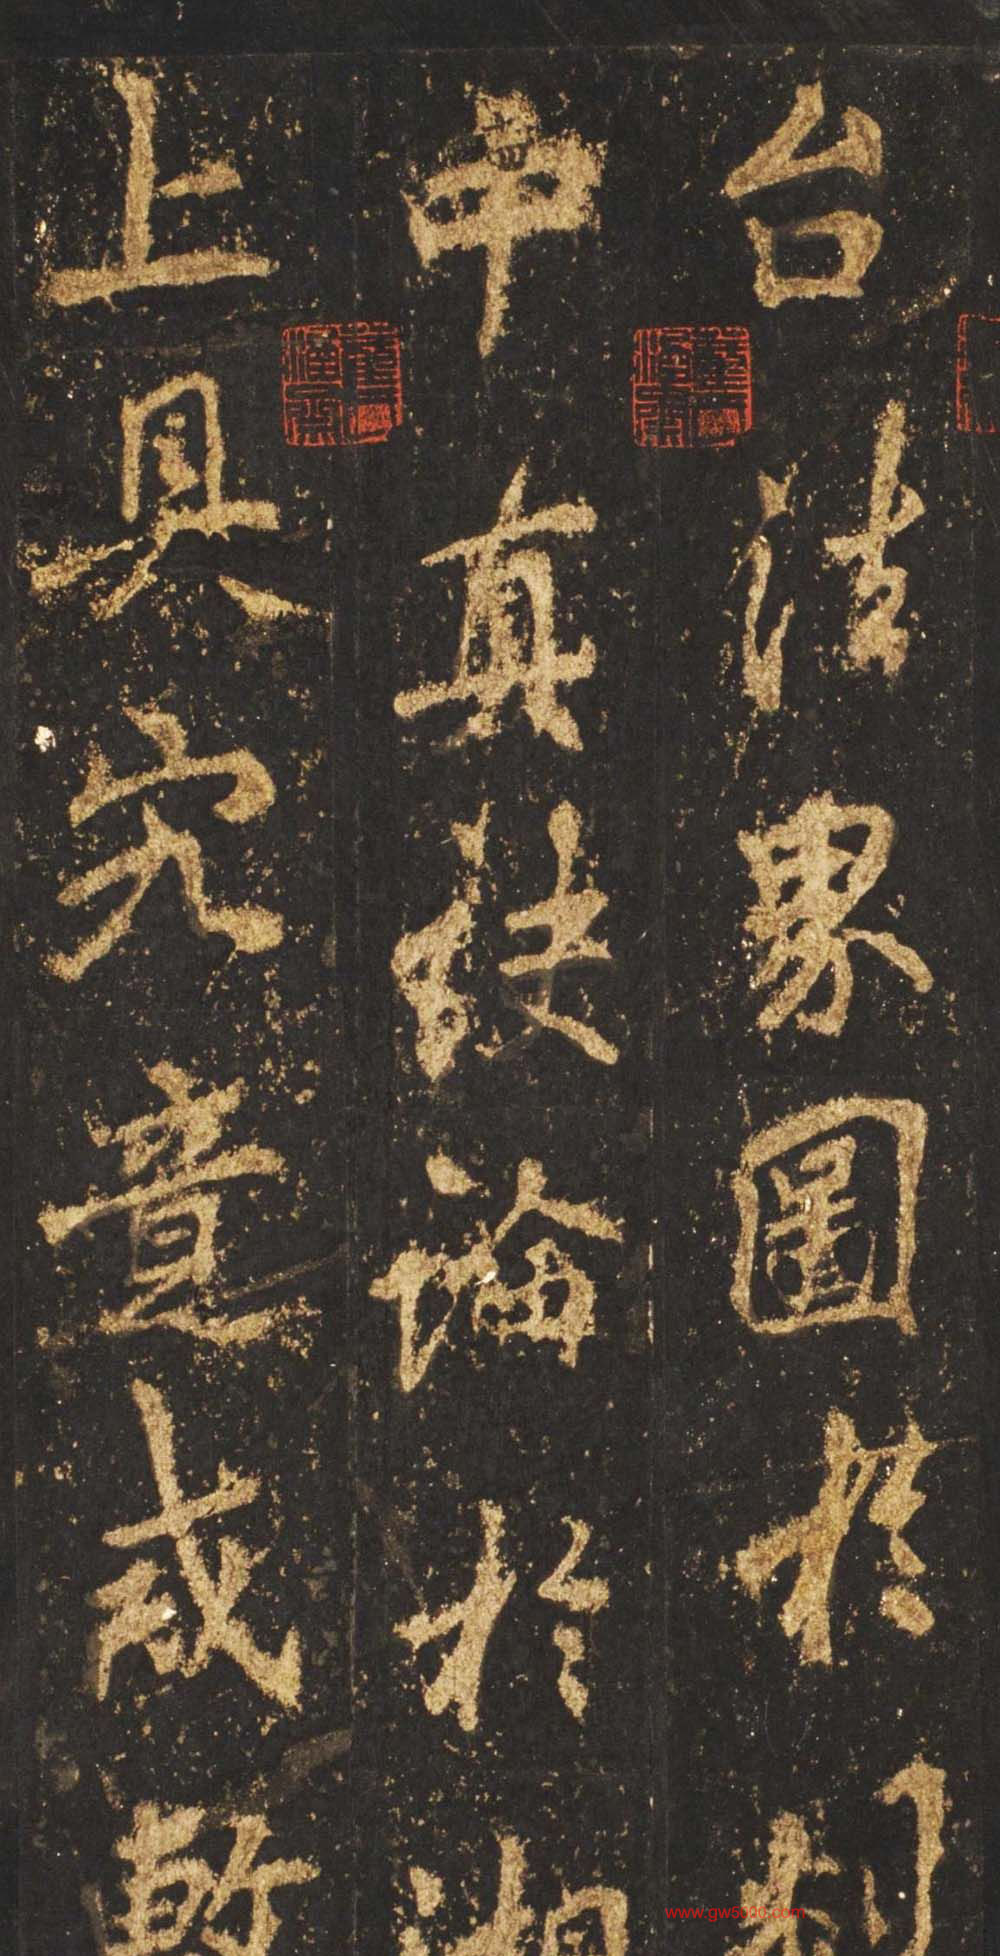 台法界圖於
中真論於湖
上具究竟戒
www.gw5500.com